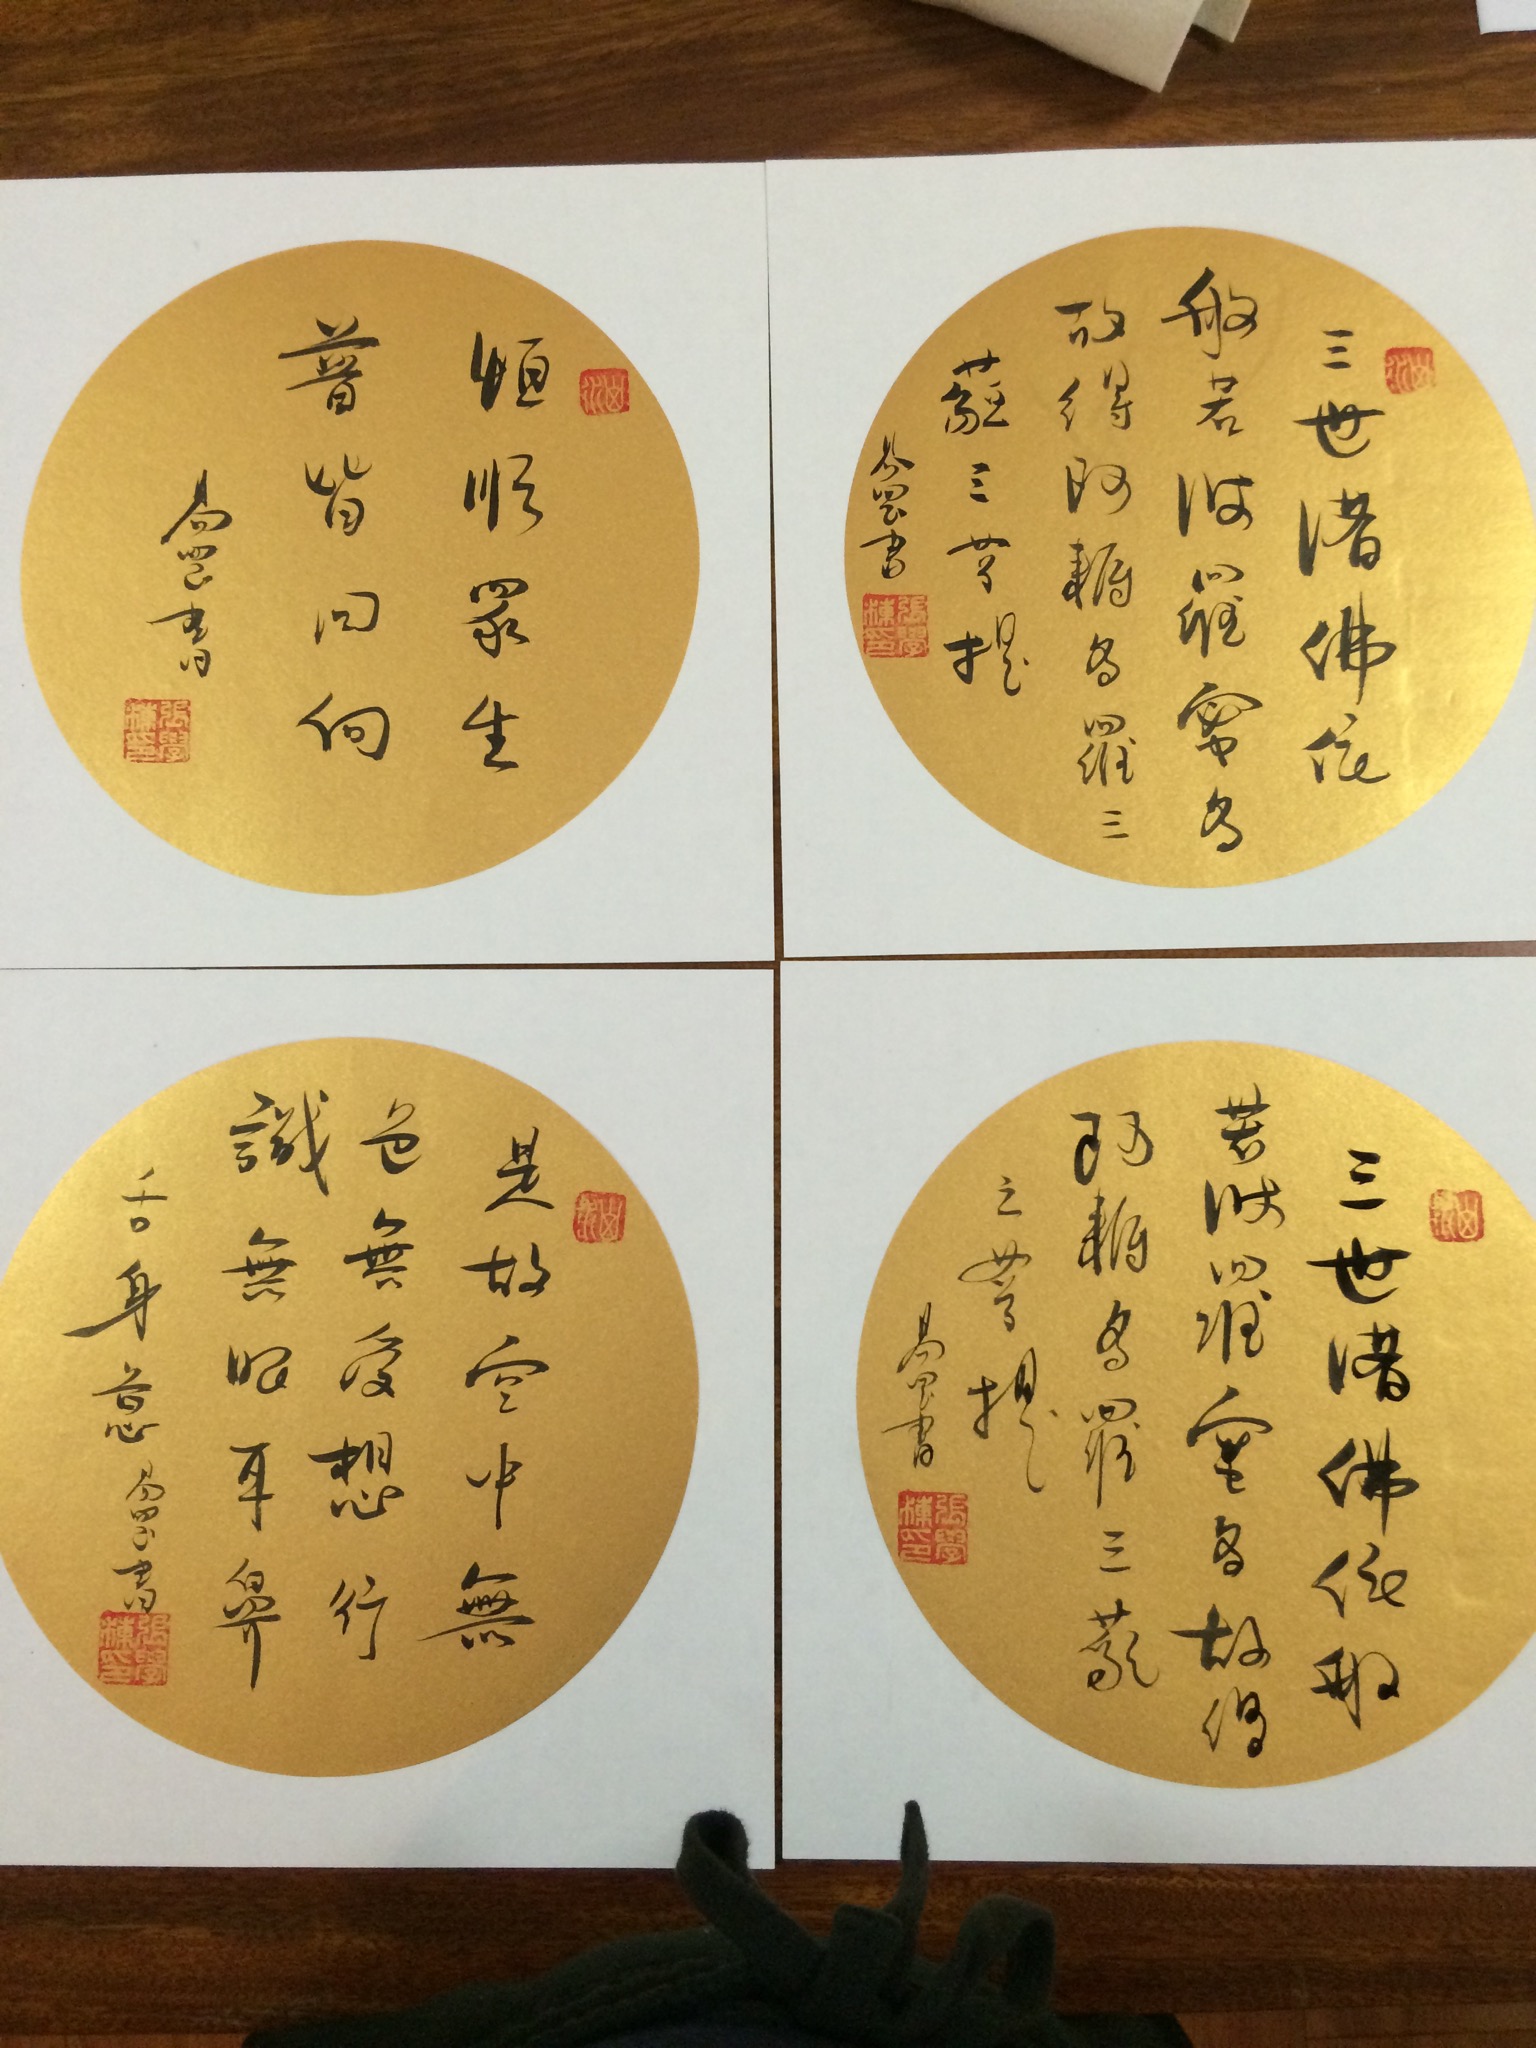 恒順眾生
普皆回向
書
張學棟印
三世諸佛依
般若波羅蜜多
故得阿耨多羅三
藐三菩提
書
張學棟印
是故空中無
色無受想行
識無眼耳鼻
舌身意
書
張學棟印
三世諸佛依般
若波羅蜜多故得
阿耨多羅三藐
三菩提
書
張學棟印